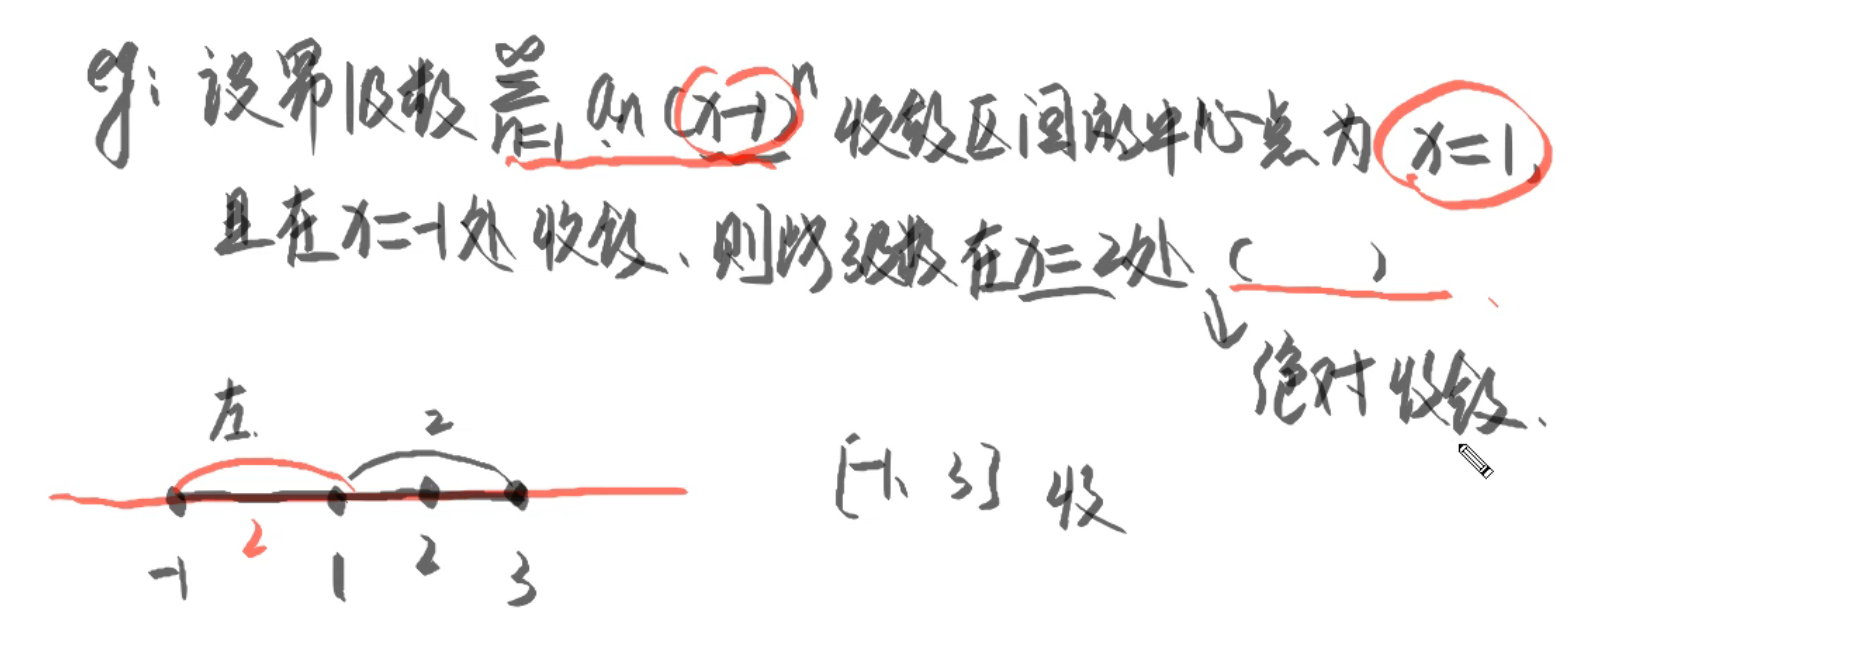 eg: 设幂级数 ∞ Σ n=1 an (x-1)^n 收敛区间的中心点为 x=1,
且在x=-1处收敛、则此级数在x=2处 ( ).
↓
绝对收敛.
左. 2
[-1, 3] 收
2
-1 1 2 3